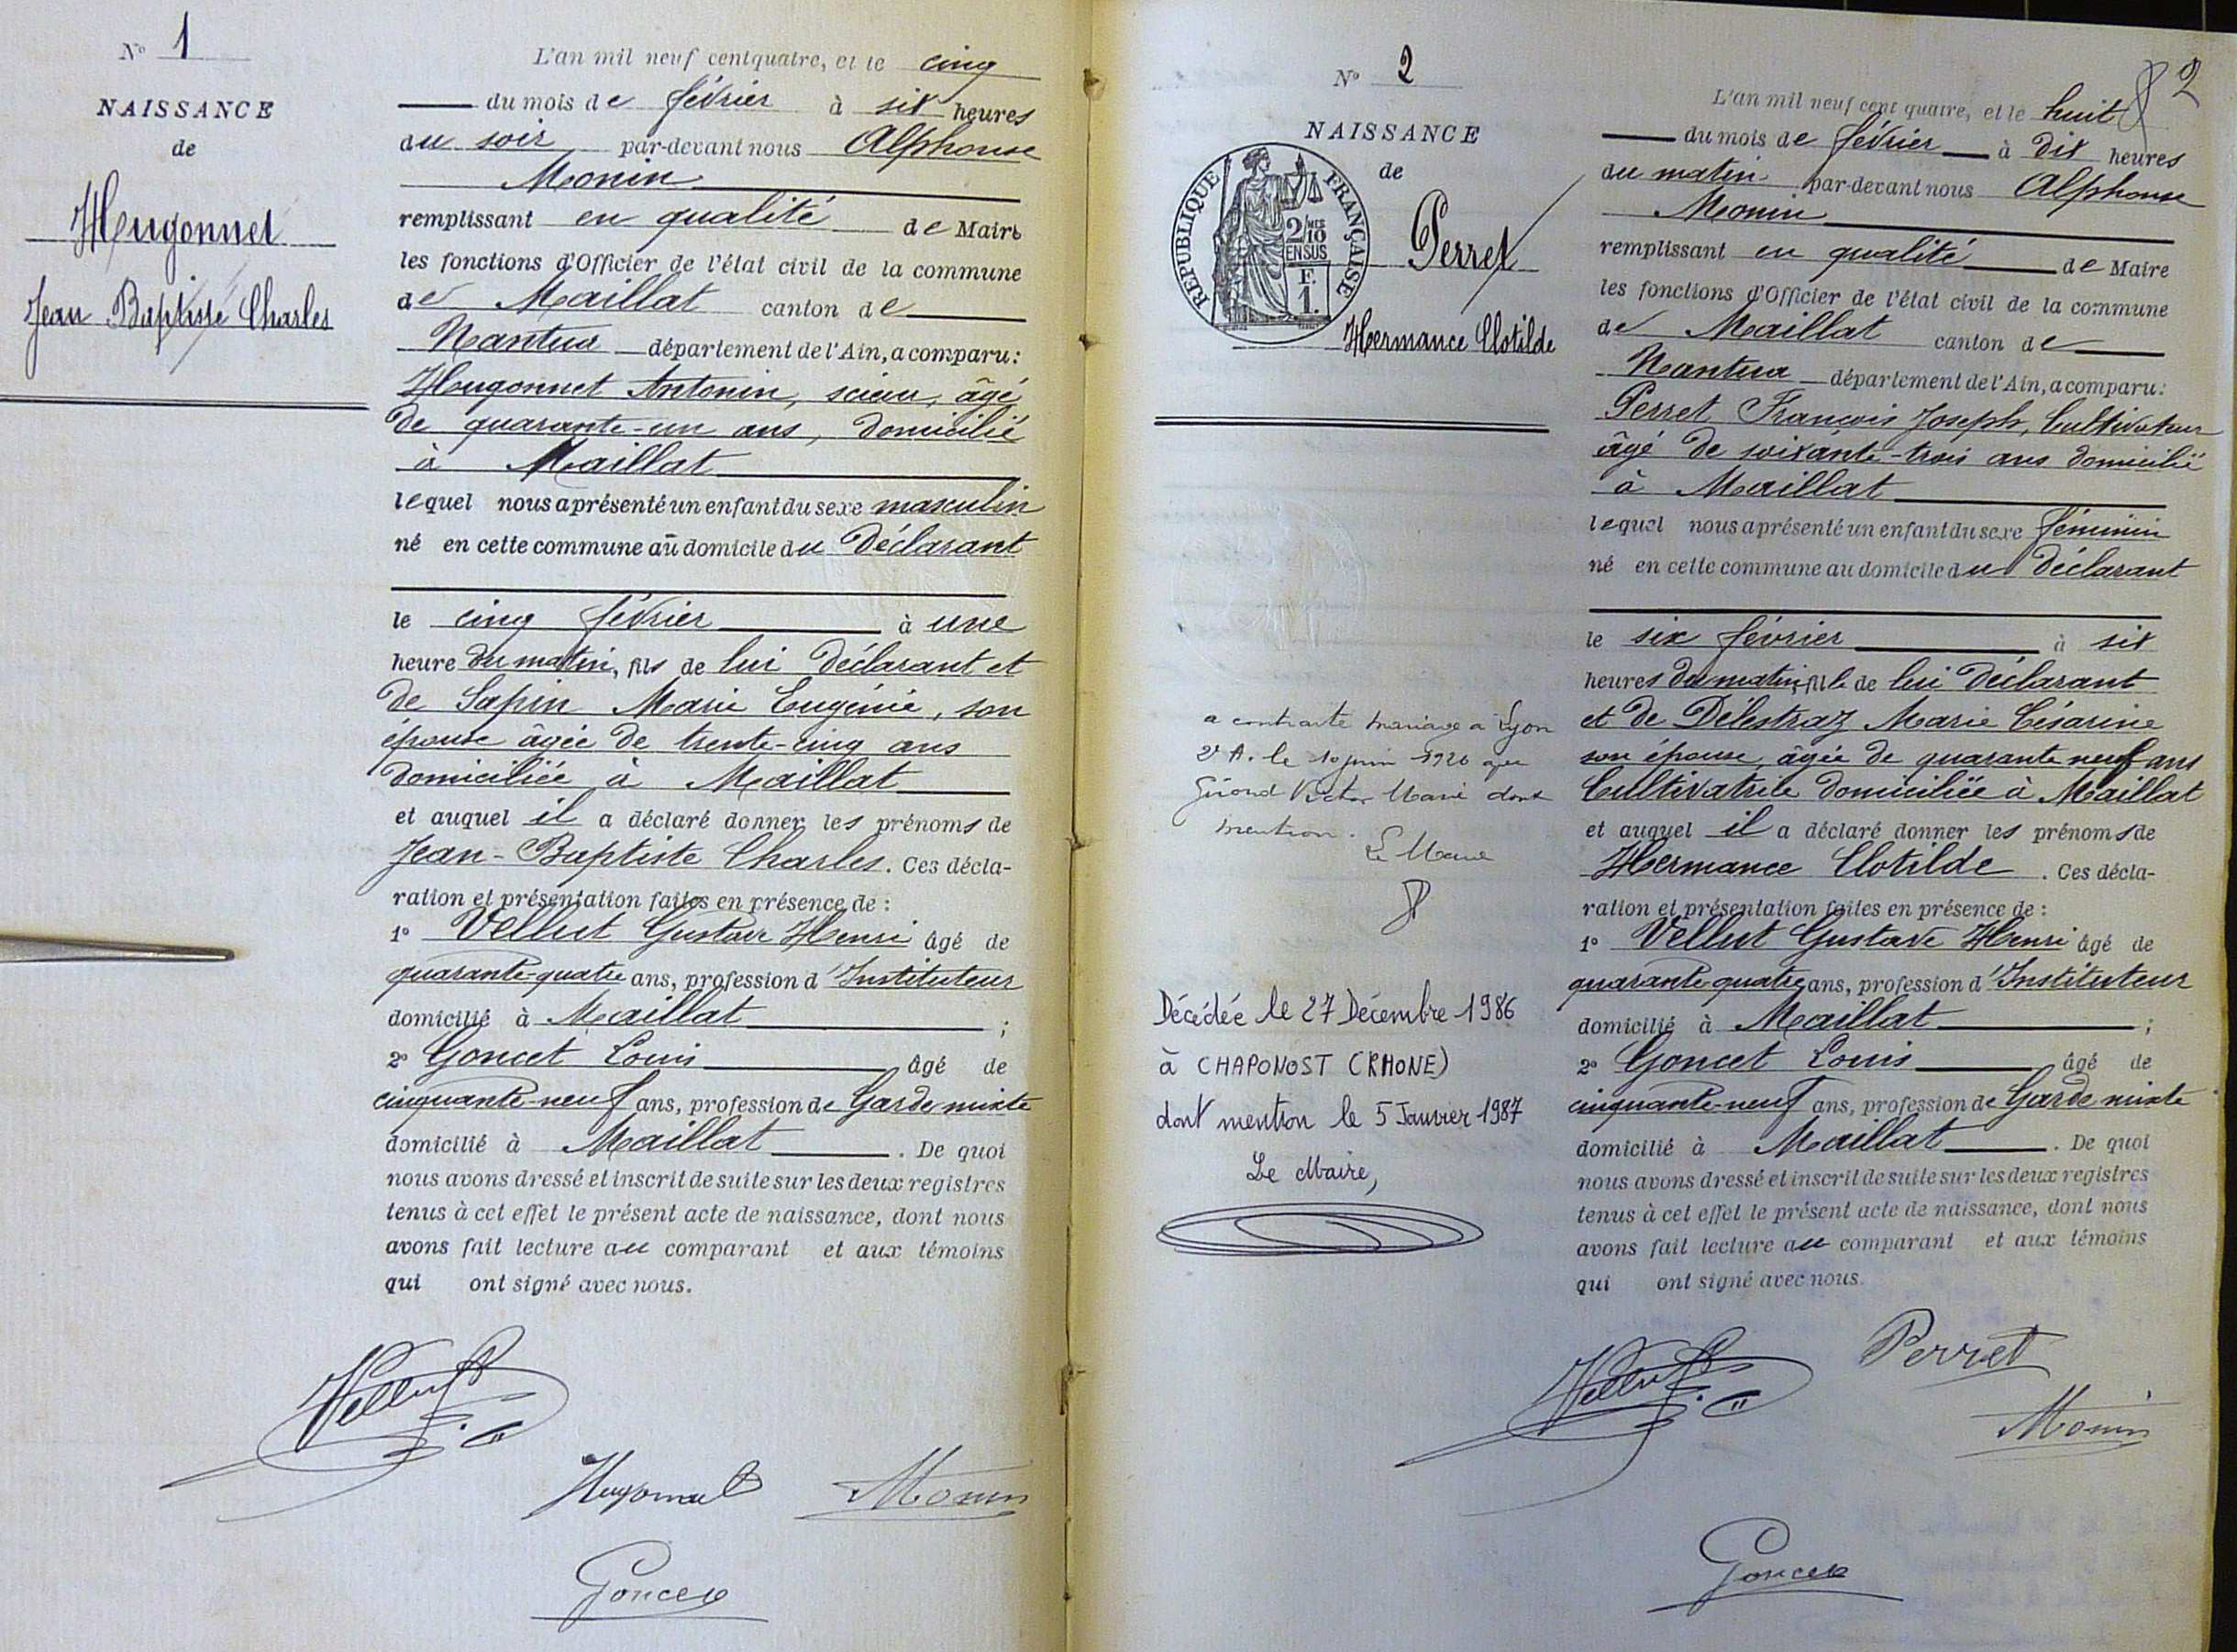 N° 1
NAISSANCE
de
Hugonnet
Jean Baptiste Charles
L'an mil neuf cent quatre, et le cinq
du mois de février à six heures
du soir par-devant nous Alphonse
Monin
remplissant en qualité de Maire
les fonctions d'Officier de l'état civil de la commune
de Maillat canton de
Nantua département de l'Ain, a comparu :
Hugonnet Antonin, scieur, âgé
de quarante-un ans, domicilié
à Maillat
lequel nous a présenté un enfant du sexe masculin
né en cette commune au domicile du Déclarant
le cinq février à une
heure du matin, fils de lui Déclarant et
de Sapin Marie Eugénie, son
épouse âgée de trente-cinq ans
domiciliée à Maillat
et auquel il a déclaré donner les prénoms de
Jean-Baptiste Charles. Ces décla-
ration et présentation faites en présence de :
1° Vellut Gustave Henri âgé de
quarante-quatre ans, profession d'Instituteur
domicilié à Maillat ;
2° Goncet Louis âgé de
cinquante-neuf ans, profession de Garde mixte
domicilié à Maillat. De quoi
nous avons dressé et inscrit de suite sur les deux registres
tenus à cet effet le présent acte de naissance, dont nous
avons fait lecture au comparant et aux témoins
qui ont signé avec nous.
Vellut
Hugonnet Monin
Goncet
2
N° 2
NAISSANCE
de
REPUBLIQUE FRANÇAISE
2/10 MES
EN SUS
F.
1.
Perret
Hermance Clotilde
a contracté mariage à Lyon
2e A. le 10 juin 1926 avec
Girond Victor Marie dont
mention.
Le Maire
Décédée le 27 Décembre 1986
à CHAPONOST (RHONE)
dont mention le 5 Janvier 1987
Le Maire,
L'an mil neuf cent quatre, et le huit
du mois de février à dix heures
du matin par-devant nous Alphonse
Monin
remplissant en qualité de Maire
les fonctions d'Officier de l'état civil de la commune
de Maillat canton de
Nantua département de l'Ain, a comparu :
Perret François Joseph, Cultivateur
âgé de soixante-trois ans domicilié
à Maillat
lequel nous a présenté un enfant du sexe féminin
né en cette commune au domicile du Déclarant
le six février à six
heures du matin, fille de lui Déclarant
et de Délestraz Marie Césarine
son épouse, âgée de quarante neuf ans
Cultivatrice domiciliée à Maillat
et auquel il a déclaré donner les prénoms de
Hermance Clotilde. Ces décla-
ration et présentation faites en présence de :
1° Vellut Gustave Henri âgé de
quarante-quatre ans, profession d'Instituteur
domicilié à Maillat ;
2° Goncet Louis âgé de
cinquante-neuf ans, profession de Garde mixte
domicilié à Maillat. De quoi
nous avons dressé et inscrit de suite sur les deux registres
tenus à cet effet le présent acte de naissance, dont nous
avons fait lecture au comparant et aux témoins
qui ont signé avec nous.
Vellut Perret
Monin
Goncet